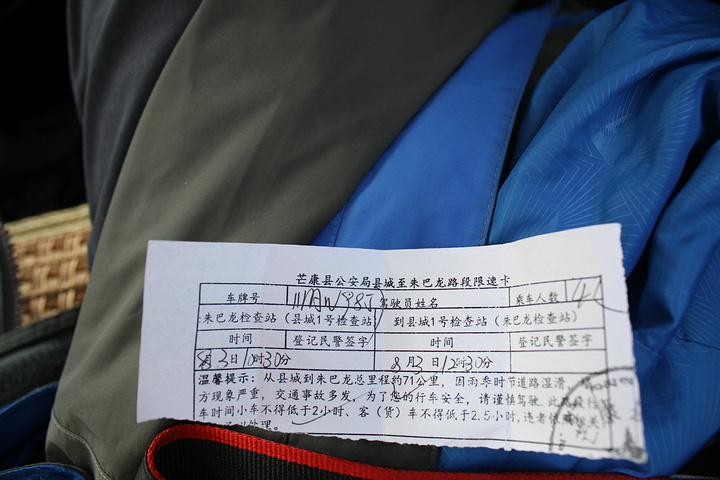 芒康县公安局县城至朱巴龙路段限速卡
车牌号 驾驶员姓名 乘车人数 4
朱巴龙检查站（县城1号检查站） 到县城1号检查站（朱巴龙检查站）
时间 登记民警签字 时间 登记民警签字
8月3日10时30分 8月3日12时30分
温馨提示：从县城到朱巴龙总里程约71公里，因雨季时节道路湿滑，
方现象严重，交通事故多发，为了您的行车安全，请谨慎驾驶，此路段行
车时间小车不得低于2小时、客（货）车不得低于2.5小时，违者依
处理。